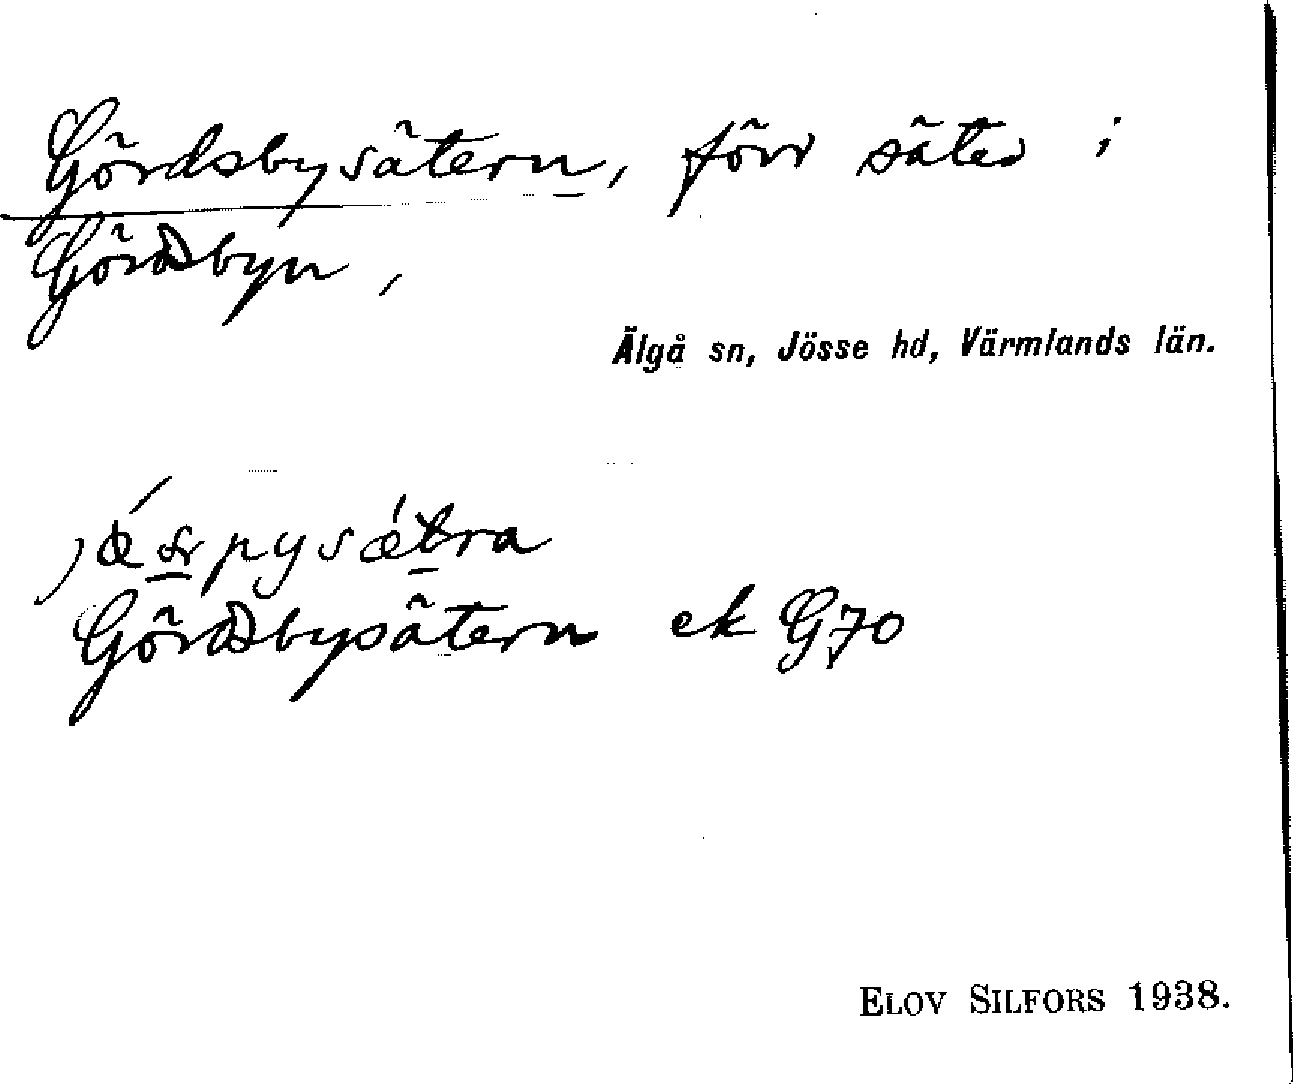 Gördsbysätern, förr säter i
Gördsbyn,
Älgå sn, Jösse hd, Värmlands län.
Gördsbysätern ek G70
ELOV SILFORS 1938.